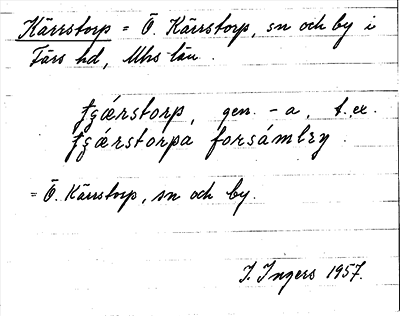 Kärrstorp = Ö. Kärrstorp, sn och by i
Färs hd, Mhs län.
ɟgǽrstorp, gen. -a, t. ex.
ɟgǽrstorpa forsámlɩŋ.
= Ö. Kärrstorp, sn och by.
I. Ingers 1957.